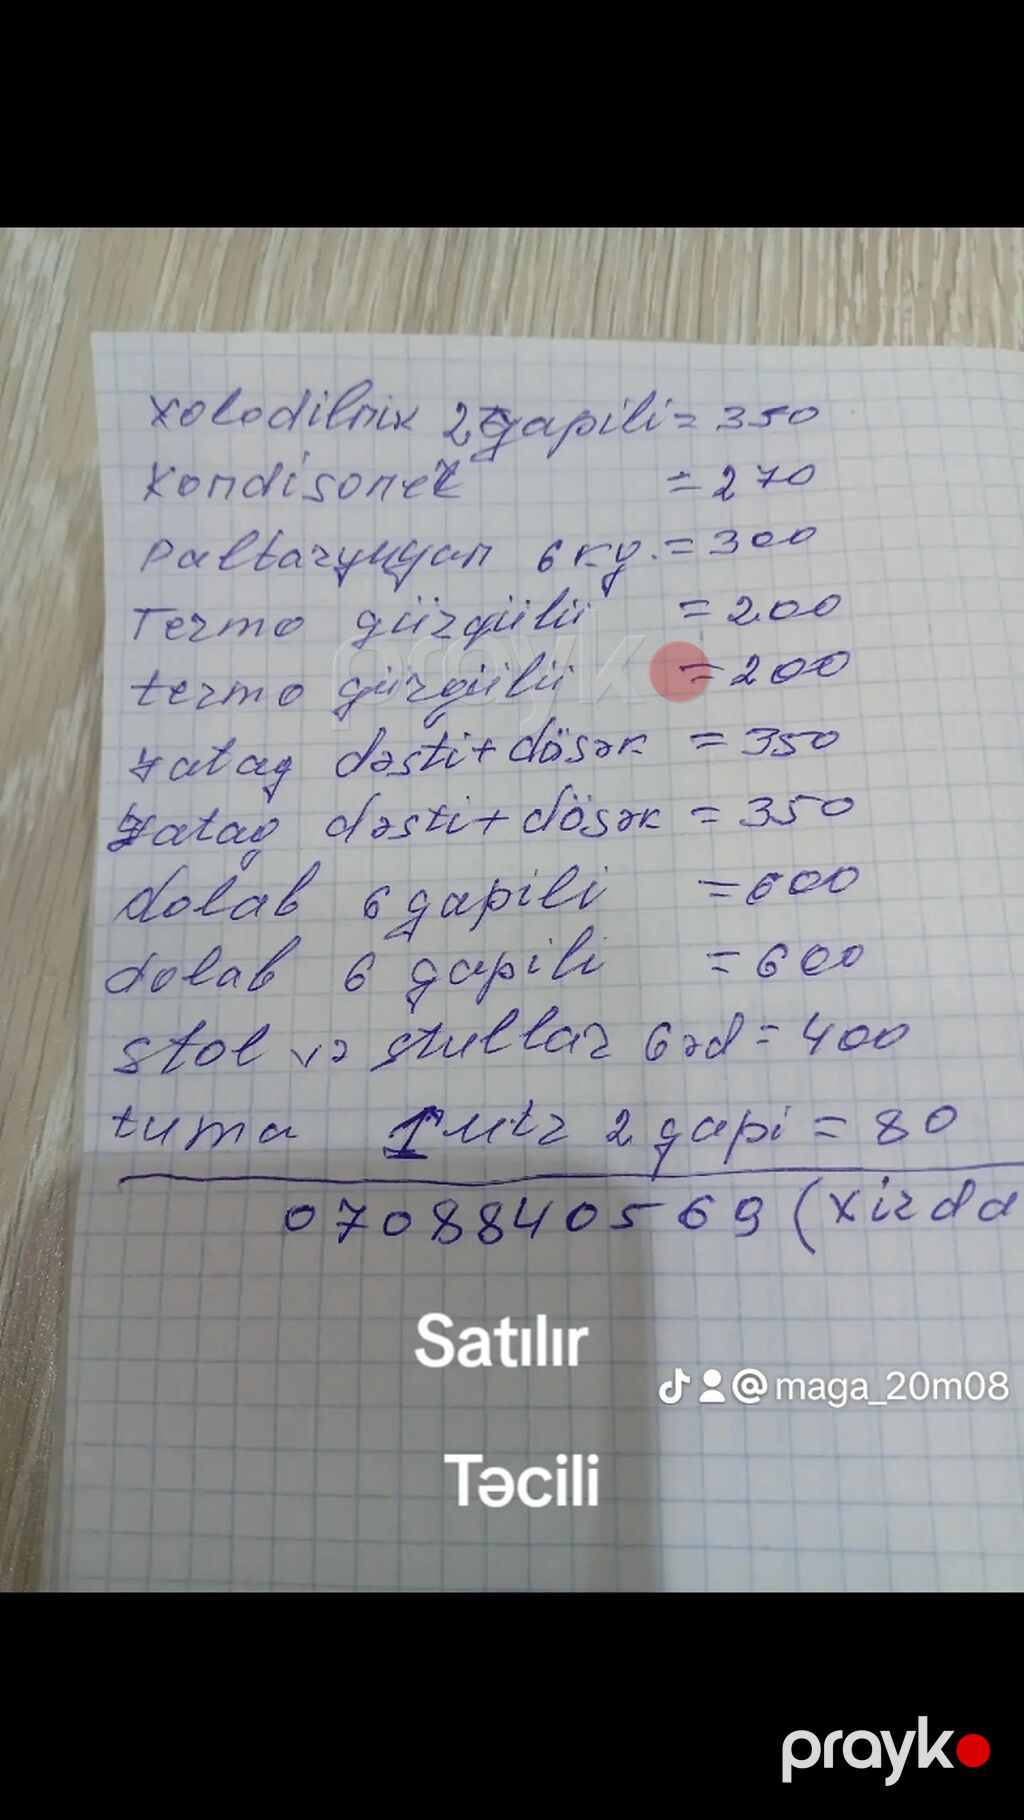 Xolodilnik 2 gapili = 350
Kondisoner = 270
Paltaryuyan 6 kg. = 300
Termo güzgülü = 200
termo güzgülü = 200
yatag dəsti + dösək = 350
yatag dəsti + dösək = 350
dolab 6 gapili = 600
dolab 6 gapili = 600
stol və stullar 6 əd = 400
tuma 1 mtr 2 gapi = 80
0708840569 (Xirda
Satılır
@maga_20m08
Təcili
prayko